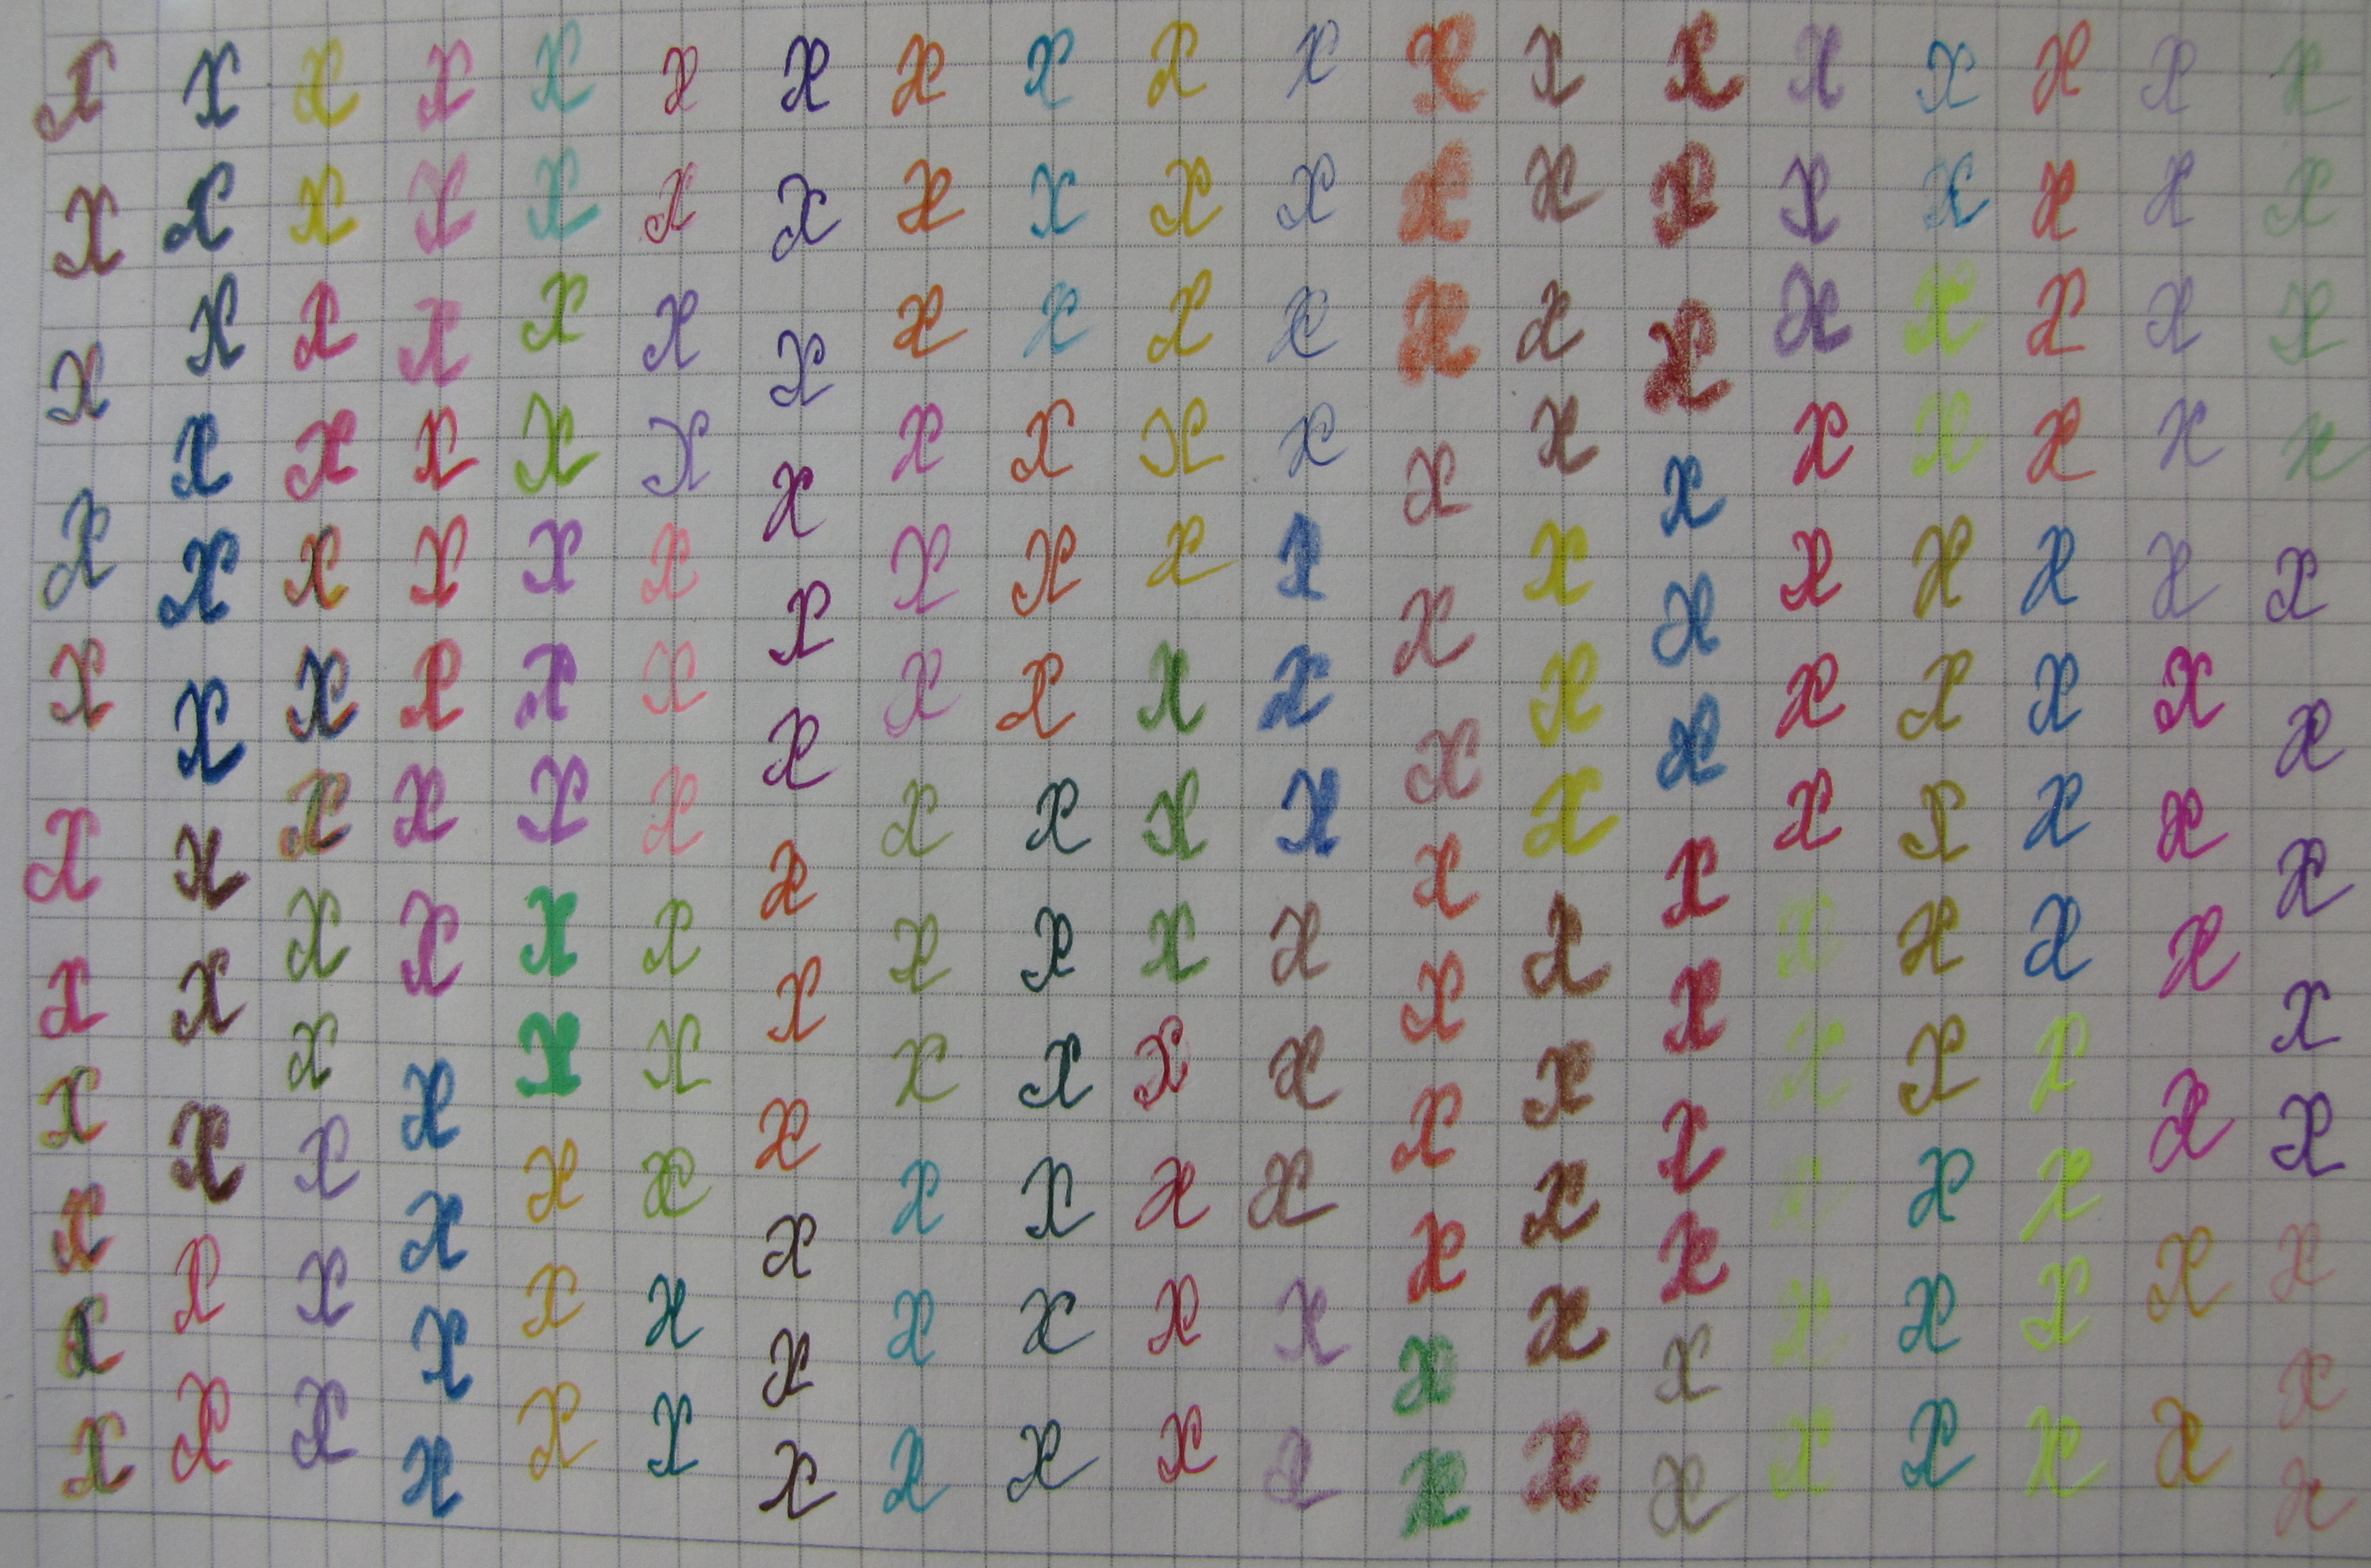 x x x x x x x x x x x x x x x x x x x
x x x x x x x x x x x x x x x x x x x
x x x x x x x x x x x x x x x x x x x
x x x x x x x x x x x x x x x x x x x
x x x x x x x x x x x x x x x x x x x
x x x x x x x x x x x x x x x x x x x
x x x x x x x x x x x x x x x x x x x
x x x x x x x x x x x x x x x x x x x
x x x x x x x x x x x x x x x x x x x
x x x x x x x x x x x x x x x x x x x
x x x x x x x x x x x x x x x x x x x
x x x x x x x x x x x x x x x x x